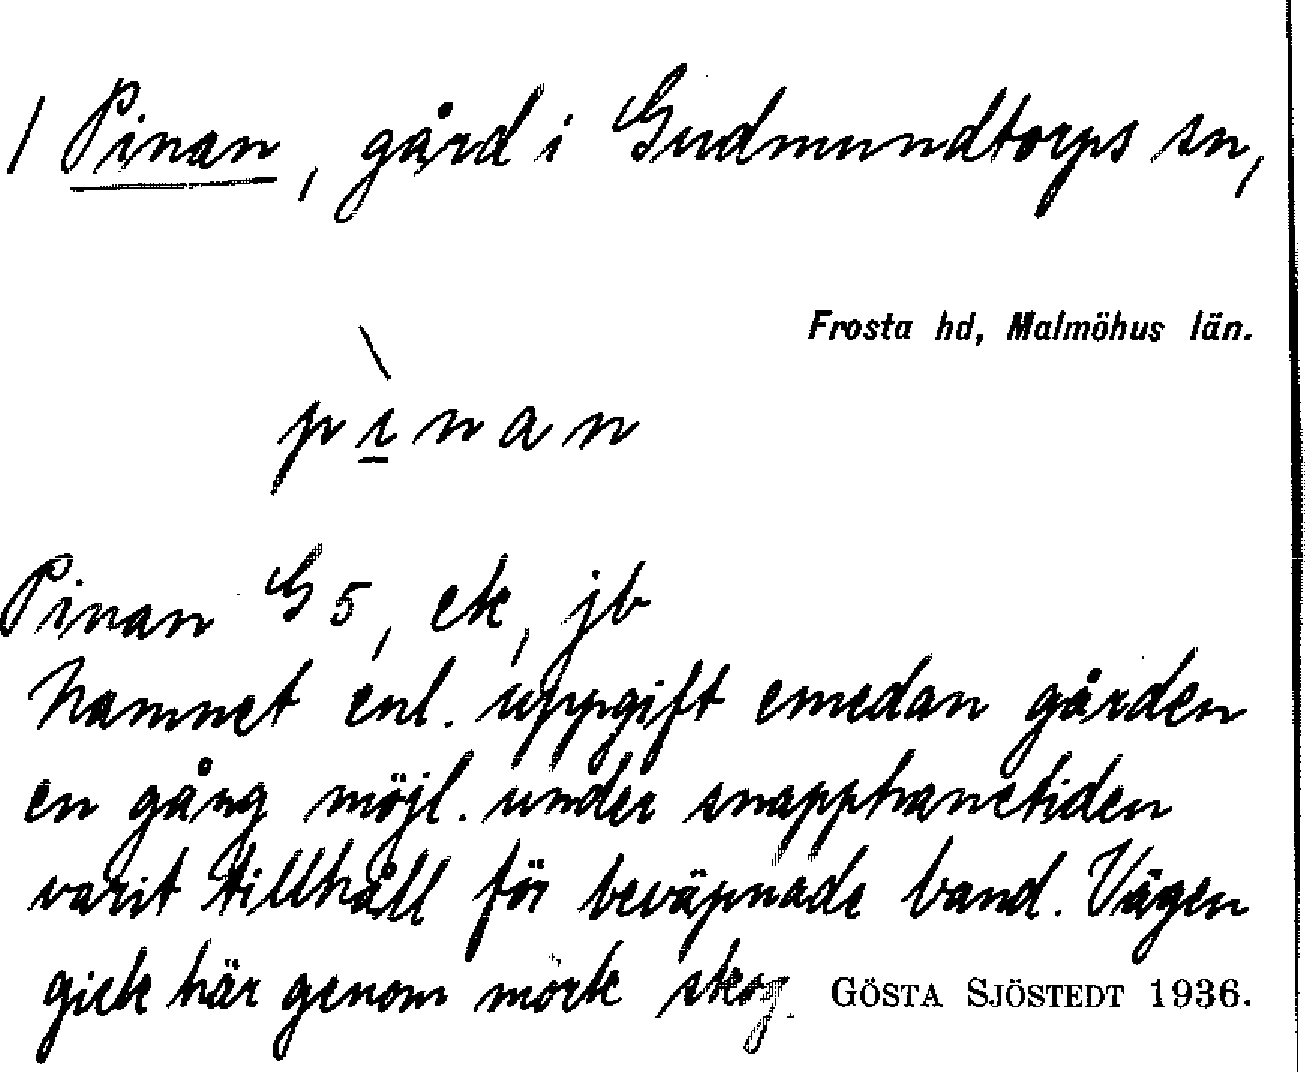 1 Pinan, gård i Gudmundtorps sn,
Frosta hd, Malmöhus län.
pìnan
Pinan G 5, ek, jb
Namnet enl. uppgift emedan gården
en gång möjl. under snapphanetiden
varit tillhåll för beväpnade band. Vägen
gick här genom mörk skog. GÖSTA SJÖSTEDT 1936.